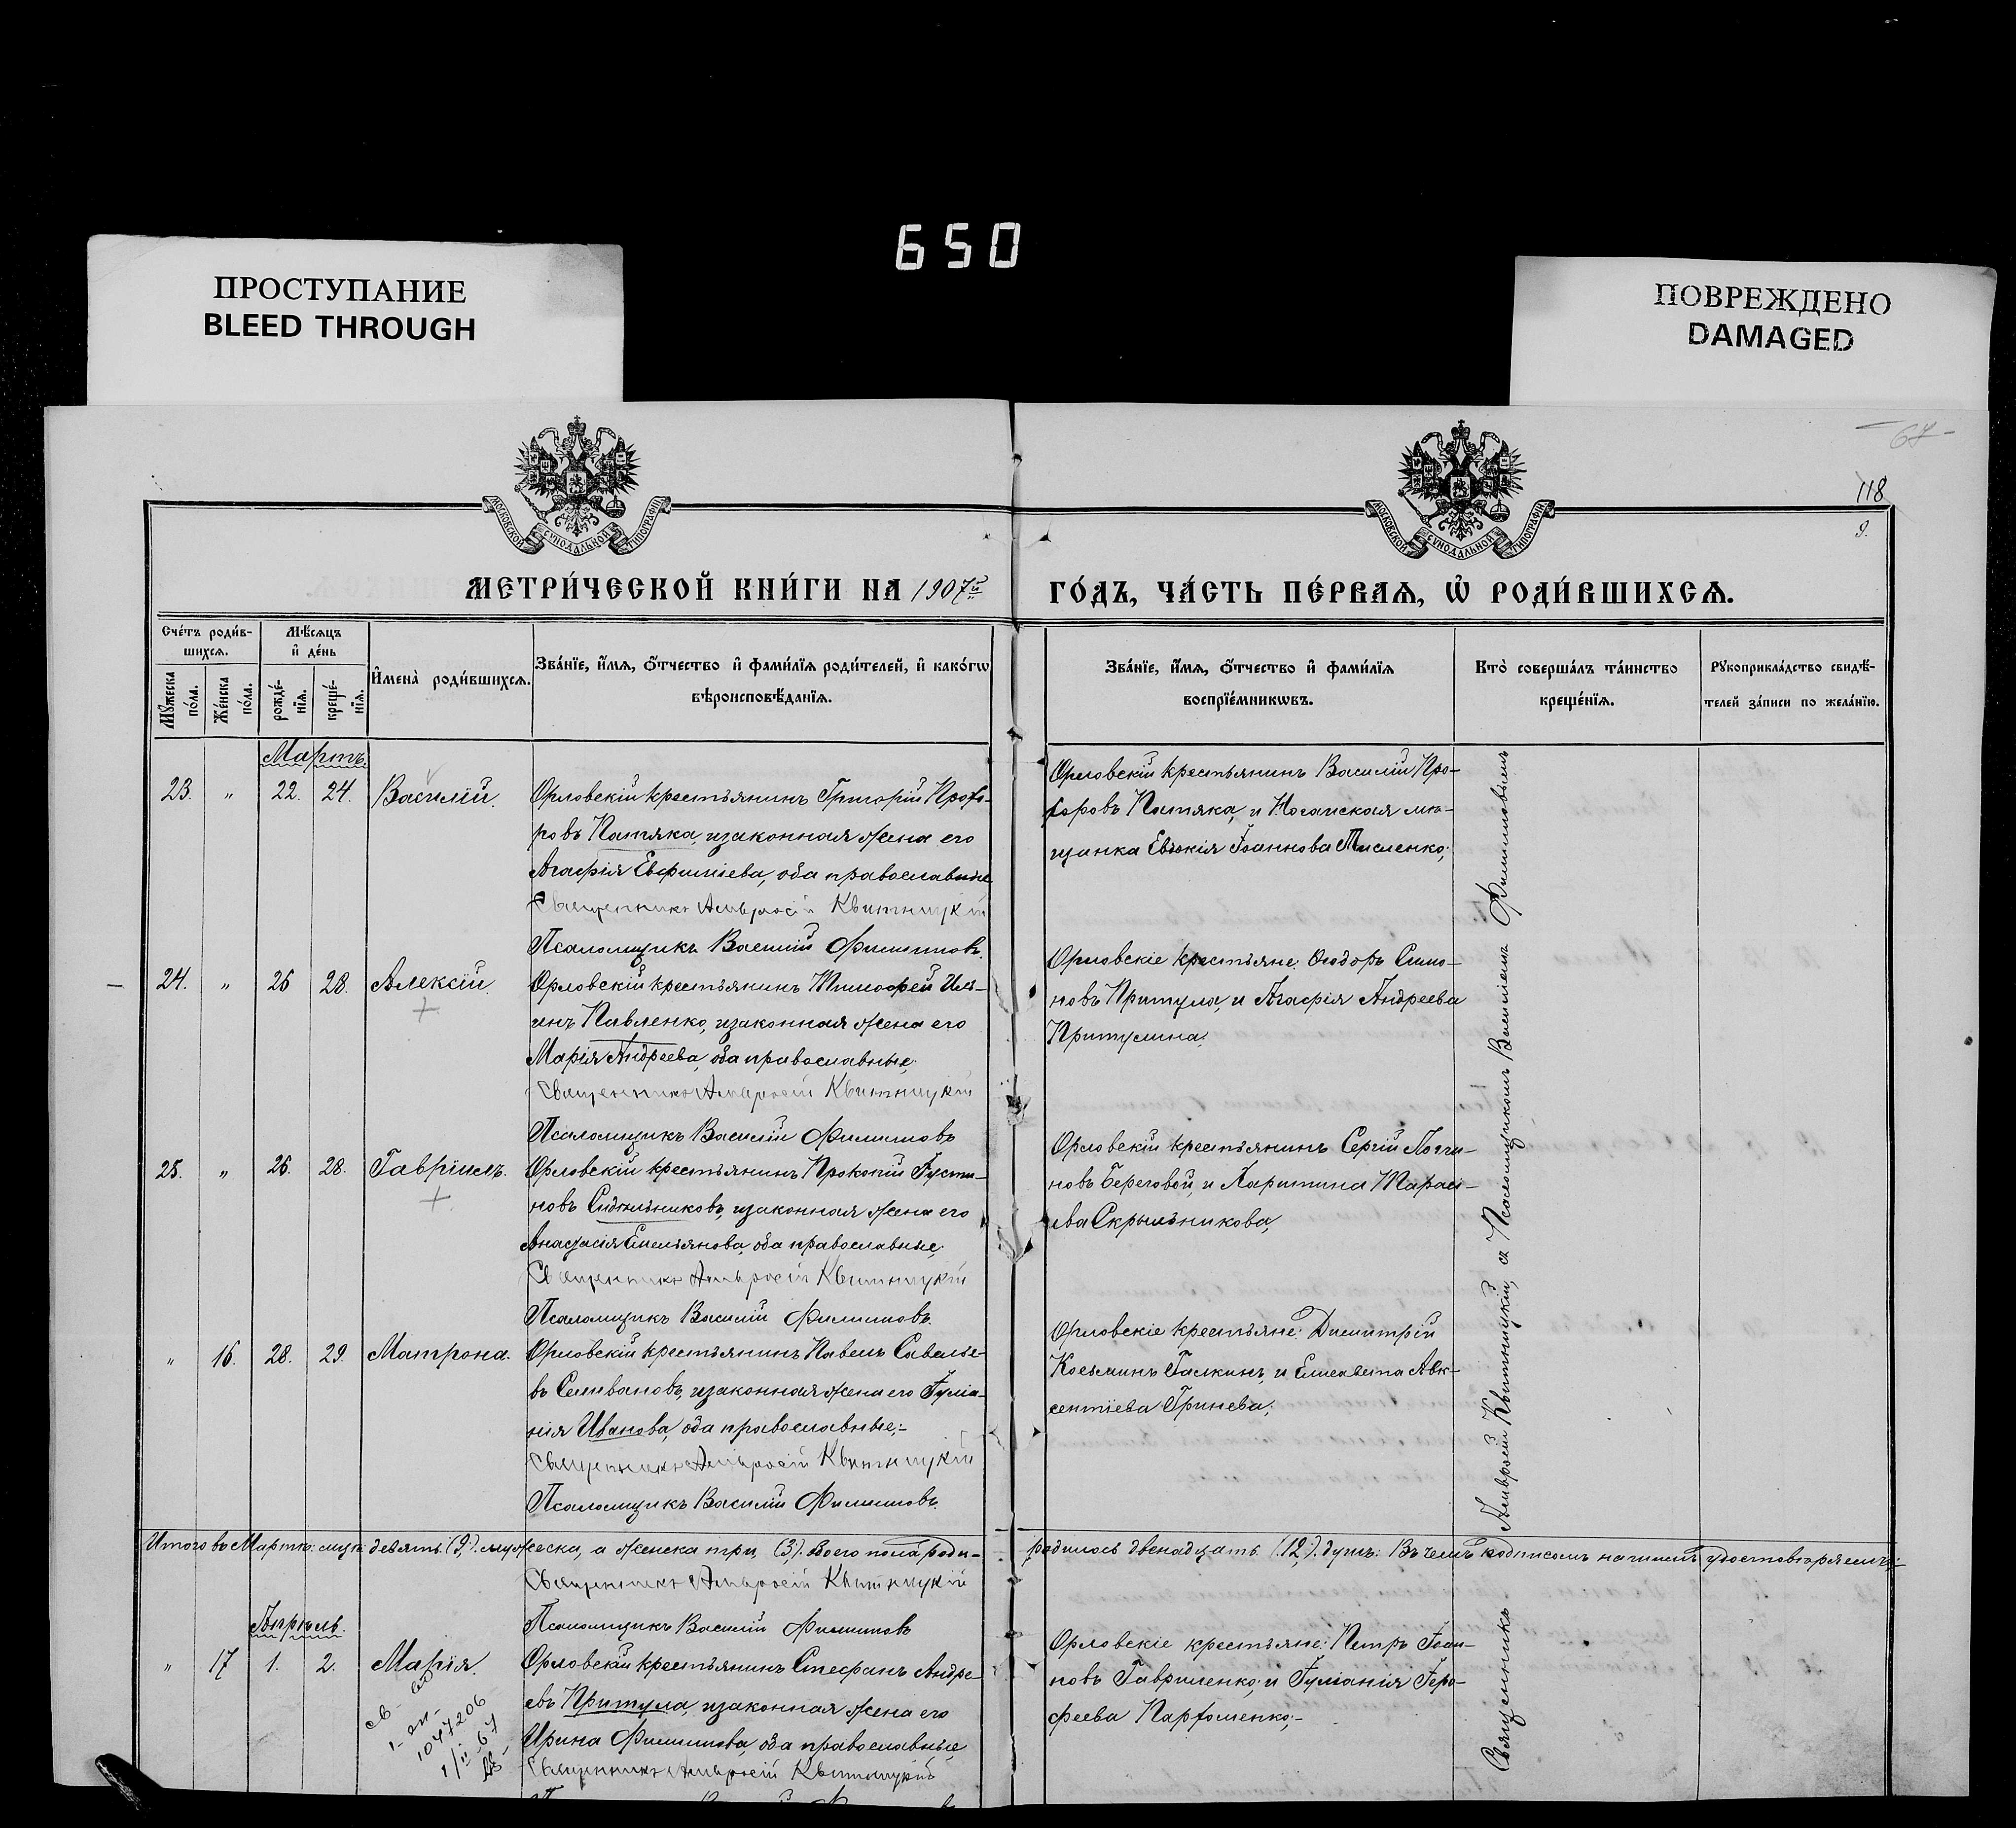 650
ПРОСТУПАНИЕ
BLEED THROUGH
ПОВРЕЖДЕНО
DAMAGED
67
118
9.
МОСКОВСКОЙ СѴНОДАЛЬНОЙ ТИПОГРАФІИ
МОСКОВСКОЙ СѴНОДАЛЬНОЙ ТИПОГРАФІИ
МЕТРИ́ЧЕСКОЙ КНИ́ГИ НА 1907й
ГО́ДЪ, ЧА́СТЬ ПЕ́РВАѦ, Ѡ҆ РОДИ́ВШИХСѦ.
Сче́тъ роди́в-
шихсѧ.
Мѣ́сѧцъ
и҆ де́нь
Мꙋ́жеска
по́ла.
Же́нска
по́ла.
рожде́-
нїѧ.
креще́-
нїѧ.
И҆мена̀ роди́вшихсѧ.
Зва́нїе, и҆́мѧ, ѻ҆́тчество и҆ фами́лїѧ роди́телей, и҆ како́гѡ
вѣроисповѣ́данїѧ.
Зва́нїе, и҆́мѧ, ѻ҆́тчество и҆ фами́лїѧ
воспрїе́мникѡвъ.
Кто̀ соверша́лъ та́инство
креще́нїѧ.
Рꙋкоприкла́дство свидѣ́-
телей за́писи по жела́нїю.
Мартъ.
23. " 22. 24. Василій.
Орловскій крестьянинъ Григорій Прохо-
ровъ Патяка, и законная жена его
Агафія Евфиміева, оба православные
Священникъ Амвросій Квитницкій
Псаломщикъ Василій Филиповъ.
Орловскій крестьянинъ Василій Про-
хоровъ Патяка, и Ногайская мѣ-
щанка Евдокія Іоаннова Тисленко;
24. " 26 28. Алексій.
Орловскій крестьянинъ Тимофей Иль-
инъ Павленко, и законная жена его
Марія Андреева, оба православные;
Священникъ Амвросій Квитницкій
Псаломщикъ Василій Филиповъ
Орловскіе крестьяне: Ѳеодоръ Симо-
новъ Притула, и Агафія Андреева
Притулина;
25. " 26. 28. Гавріилъ.
Орловскій крестьянинъ Прокопій Іусти-
новъ Сидѣльниковъ, и законная жена его
Анастасія Емельянова, оба православные;
Священникъ Амвросій Квитницкій
Псаломщикъ Василій Филиповъ.
Орловскій крестьянинъ Сергій Логги-
новъ Береговой, и Харитина Тарасі-
ева Скрыльникова;
" 16. 28. 29. Матрона.
Орловскій крестьянинъ Павелъ Савелье-
въ Селивановъ, и законная жена его Іуліа-
нія Иванова, оба православные;-
Священникъ Амвросій Квитницкій
Псаломщикъ Василій Филиповъ.
Орловскіе крестьяне: Димитрій
Косьминъ Галкинъ, и Елисавета Авк-
сентіева Гринева;
Итого въ Мартѣ мцѣ: девять (9). мужеска, а женска три (3). обоего пола роди-
родилось двенадцать (12). душъ: Въ чемъ подписомъ нашимъ удостовѣряемъ:-
Священникъ Амвросій Квитницкій
Псаломщикъ Василій Филиповъ
Апрѣль.
" 17 1. 2. Марія.
1047206
1/II-67
Орловскій крестьянинъ Стефанъ Андре-
евъ Притула, и законная жена его
Ирина Филипова, оба православные,
Священникъ Амвросій Квитницкій
Орловскіе крестьяне: Петръ Іоан-
новъ Гавриленко; и Іуліанія Іеро-
феева Пархоменко;-
Священникъ Амвросій Квитницкій, а Псаломщикомъ Василіемъ Филиповымъ